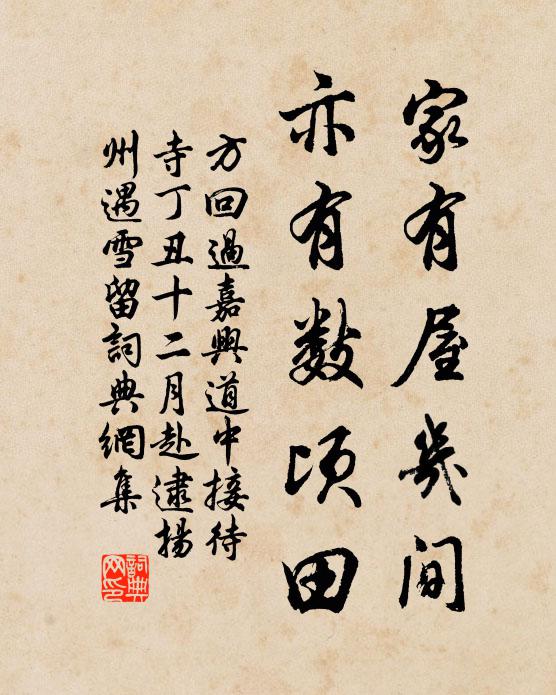 家有屋幾间
亦有数顷田
方回過嘉興道中接待
寺丁丑十二月赴逮揚
州遇雪留詞典網集
詞典
网印